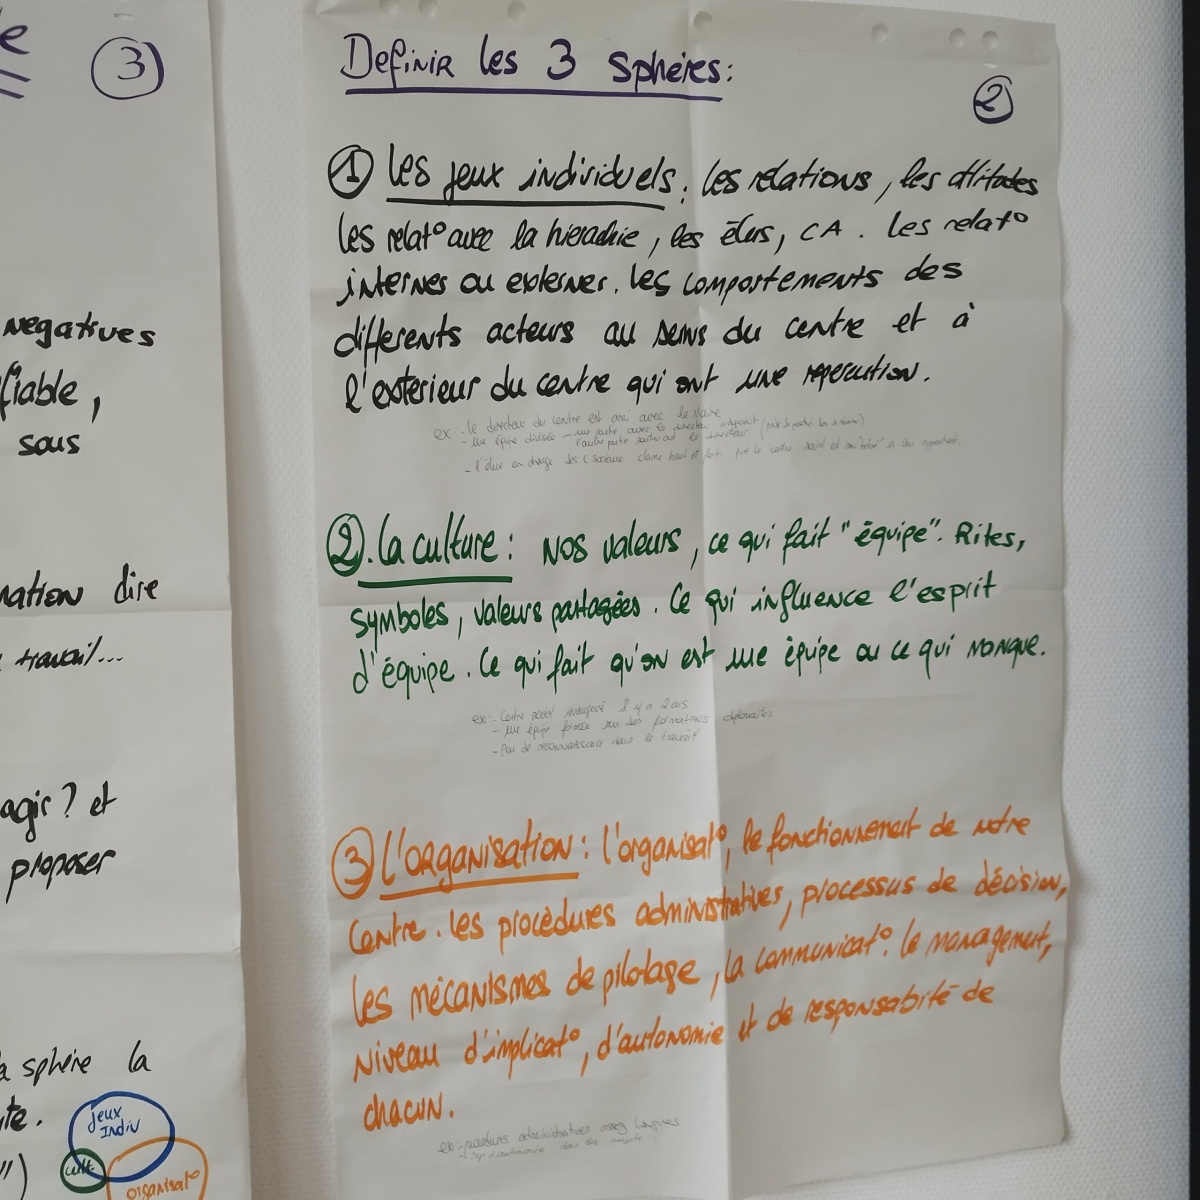 e
3
négatives
fiable,
sous
mation dire
travail...
agir? et
proposer
a sphère la
te.
jeux
Indiv
cult.
organisat°
")
Definir les 3 sphères:
2
1 Les jeux individuels: les relations, les attitudes
les relat° avec la hierachie, les élus, CA. Les relat°
internes ou externes. Les comportements des
differents acteurs au seins du centre et à
l'exterieur du centre qui ont une repercution.
ex: - le directeur du centre est ami avec le Maire
- une équipe divisée - une partie avec le directeur adjoint
l'autre partie soutenant le directeur
- l'élue en charge des C Sociaux clame haut et fort que le centre social est son "bébé"
2. La culture: Nos valeurs, ce qui fait "équipe". Rites,
symboles, valeurs partagées. Ce qui influence l'esprit
d'équipe. Ce qui fait qu'on est une équipe ou ce qui manque.
ex: - Centre social il y a 2 ans
- une équipe formée sur des formations différentes
- Peu de reconnaissance dans le travail
3 L'organisation: l'organisat°, le fonctionnement de notre
Centre. Les procédures administratives, processus de décision,
les mécanismes de pilotage, la communicat°. Le management,
Niveau d'implicat°, d'autonomie et de responsabité de
chacun.
ex: - procédures administratives assez longues